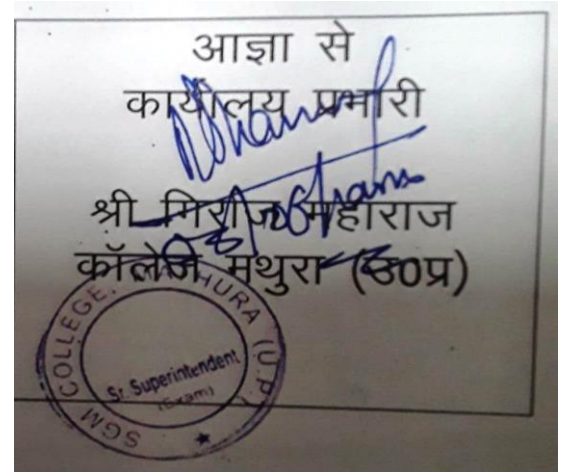 आज्ञा से
कार्यालय प्रभारी
श्री गिर्राज महाराज
कॉलेज मथुरा (उ0प्र)
SGM COLLEGE, MATHURA (U.P.)
Sr. Superintendent
(Exam)